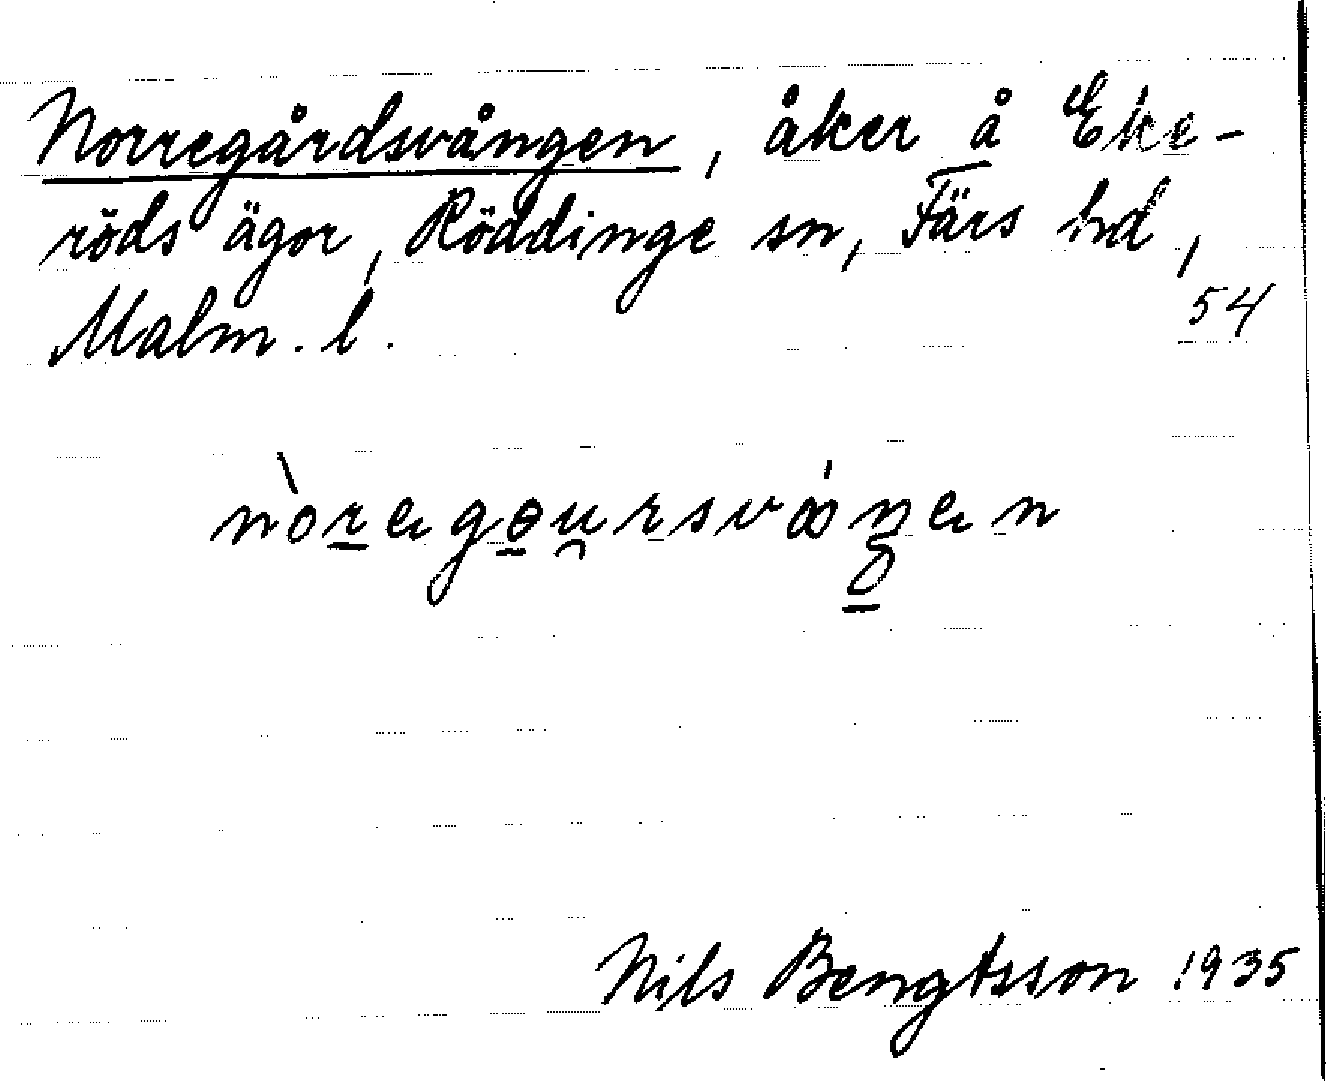 Norregårdsvången, åker å Eke-
röds ägor, Röddinge sn, Färs hd,
Malm. l.
54
nòregɵu̯rsváŋen
Nils Bengtsson 1935